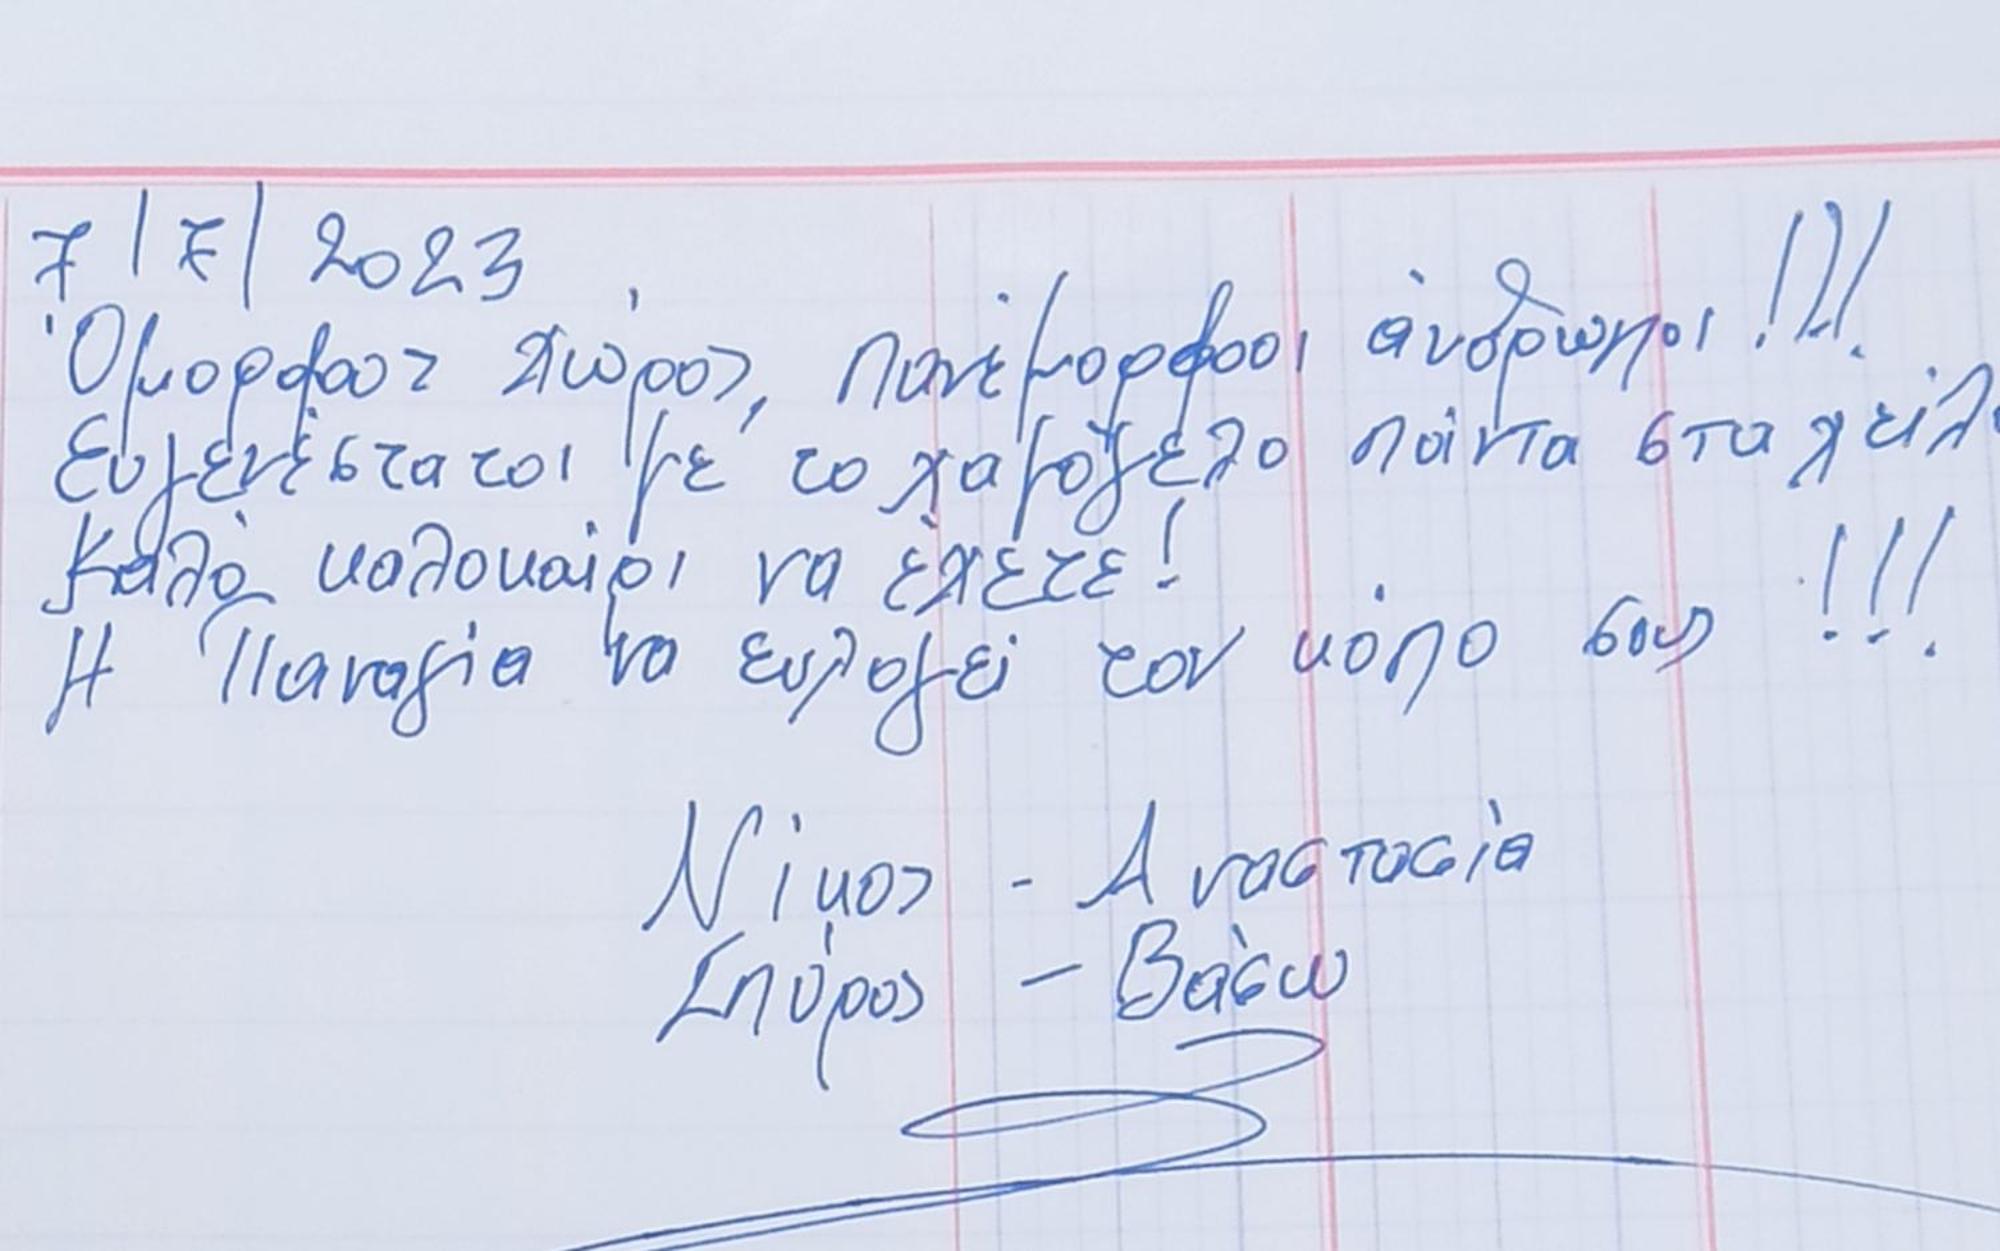 7/7/2023
Όμορφος χώρος, πανέμορφοι άνθρωποι!!!
Ευγενέστατοι με το χαμόγελο πάντα στα χείλ
Καλό καλοκαίρι να έχετε!
Η Παναγία να ευλογεί τον κόπο σας!!!
Νίκος - Αναστασία
Σπύρος - Βάσω